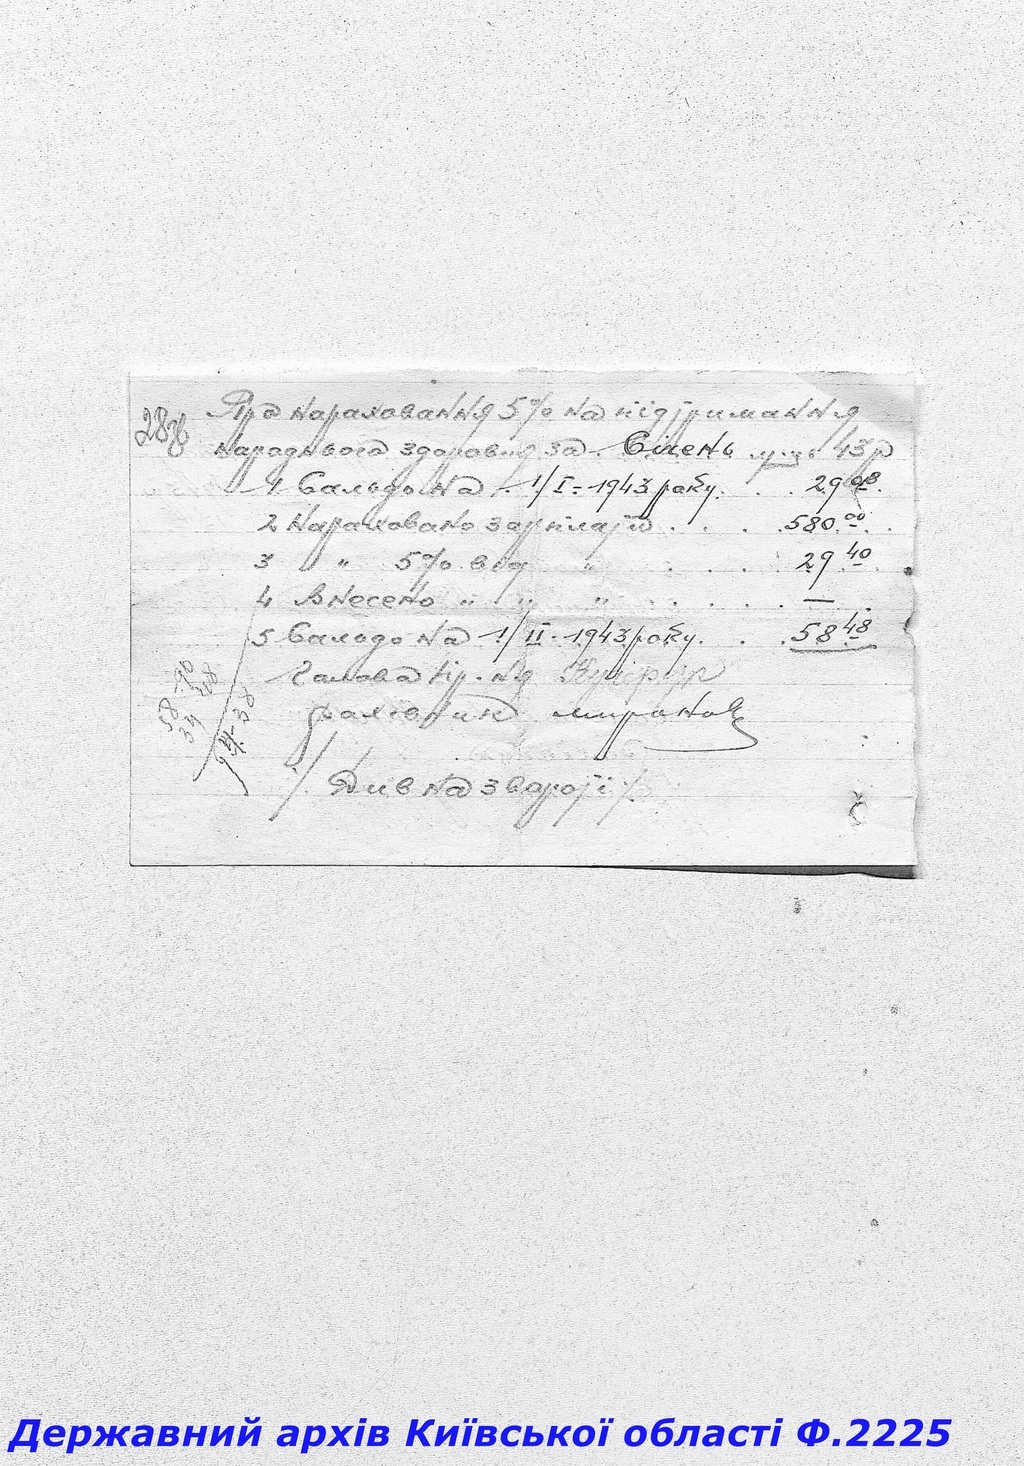 28зв
Про нарахування 5% на підтримання
народнього здоровця за Січень м-ць 43 р
1 Сальдо на 1/I-1943 року. . . 29 08
2 Нараховано зарплати . . . 580 00
3 " 5% від " . . . 29 40
4 Внесено " " " . . . —
5 Сальдо на 1/II-1943 року. . . 58 48
Голова
Рахівник
/ Див на звороті /
94-38
Державний архів Київської області Ф.2225